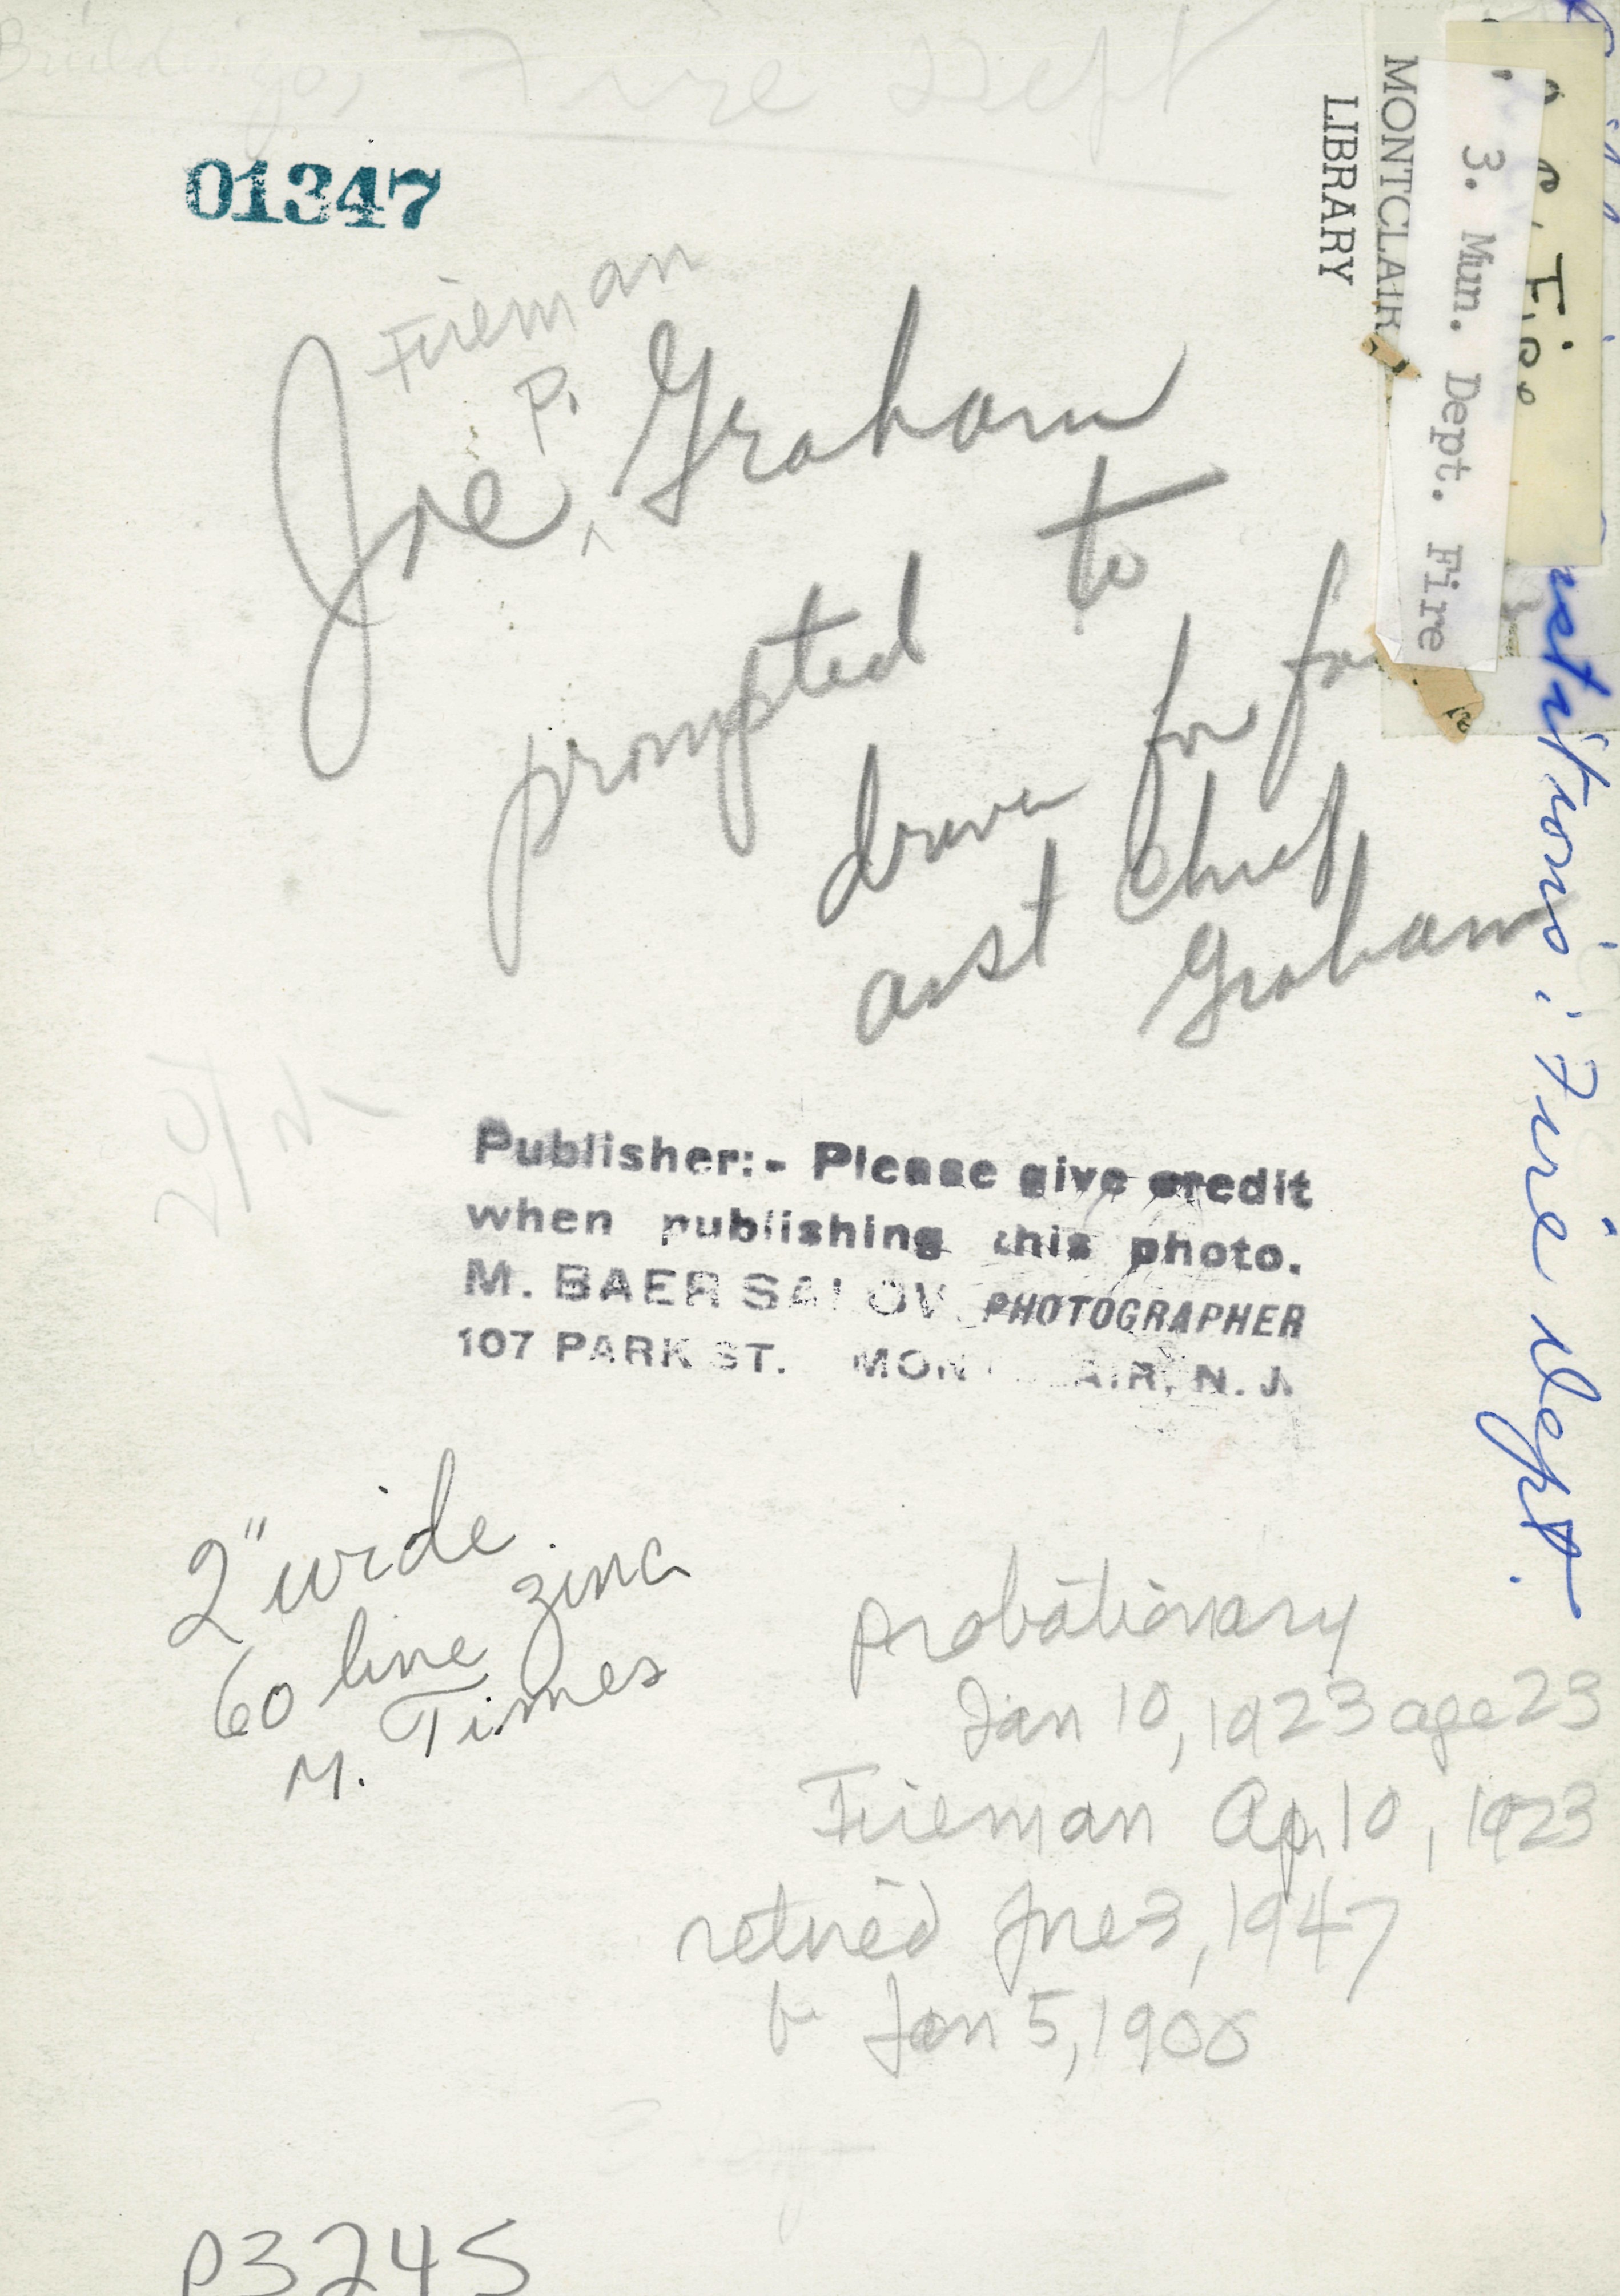 Buildings, Fire Dept
01347
MONTCLAIR
LIBRARY
3. Mun. Dept. Fire
Fire
Institutions: Fire Dept.
Fireman
Joe P. Graham
prompted to
driver for
asst Chief
Graham
Publisher:- Please give credit
when publishing this photo.
M. BAER SALOV PHOTOGRAPHER
107 PARK ST. MONTCLAIR, N. J.
2" wide
60 line zinc
M. Times
probationary
Jan 10, 1923 age 23
Fireman Ap 10, 1923
retired Jne 3, 1947
b Jan 5, 1900
P3245